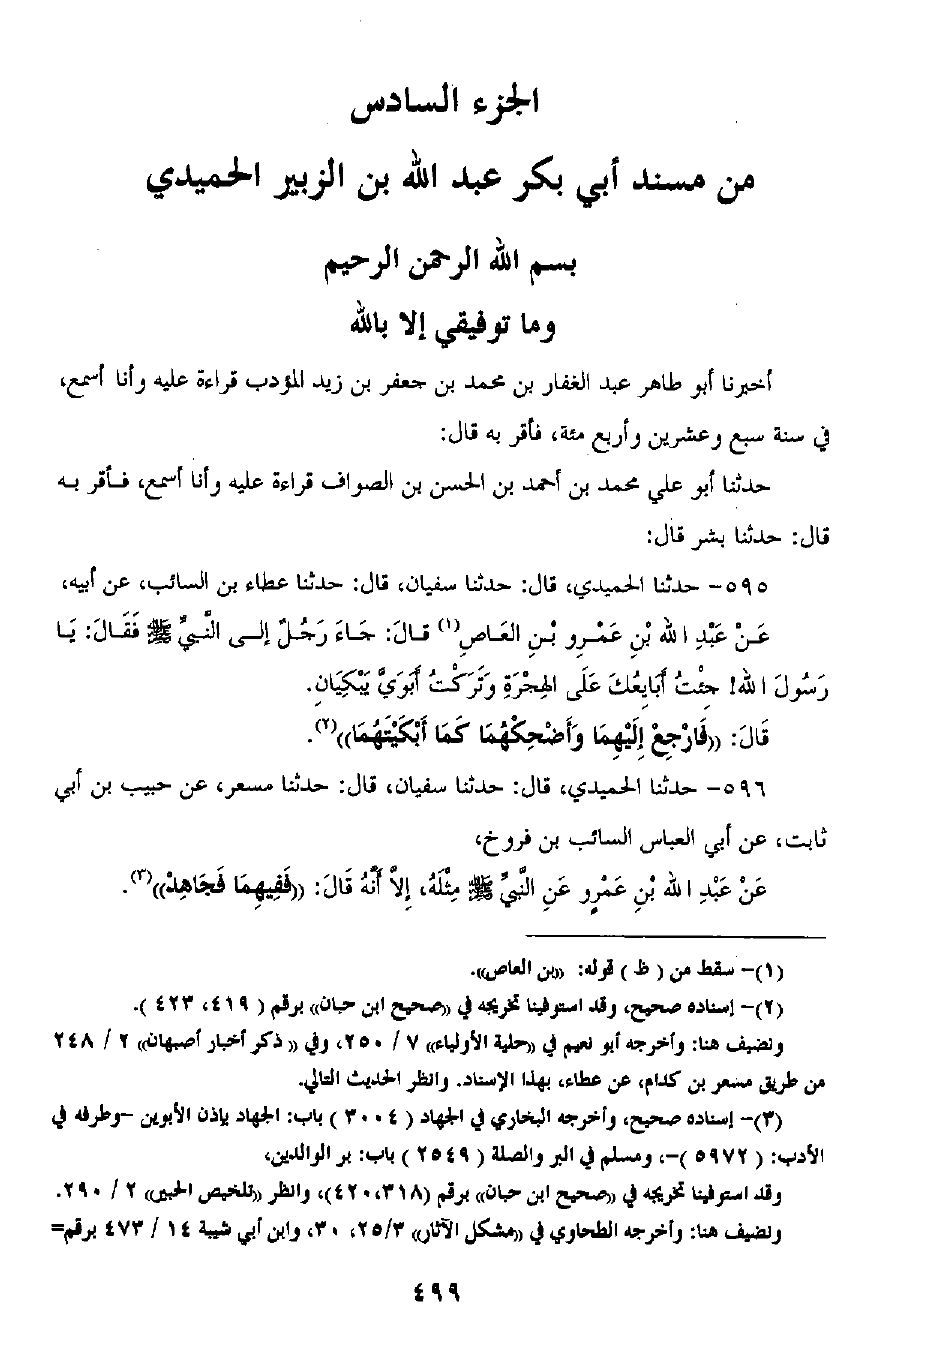 الجزء السادس
من مسند أبي بكر عبد الله بن الزبير الحميدي
بسم الله الرحمن الرحيم
وما توفيقي إلا بالله
أخبرنا أبو طاهر عبد الغفار بن محمد بن جعفر بن زيد المؤدب قراءة عليه وأنا أسمع،
في سنة سبع وعشرين وأربع مئة، فأقر به قال:
حدثنا أبو علي محمد بن أحمد بن الحسن بن الصواف قراءة عليه وأنا أسمع، فأقر به
قال: حدثنا بشر قال:
٥٩٥- حدثنا الحميدي، قال: حدثنا سفيان، قال: حدثنا عطاء بن السائب، عن أبيه،
عَنْ عَبْدِ اللهِ بْنِ عَمْرِو بْنِ العَاصِ(١) قَالَ: جَاءَ رَجُلٌ إِلَى النَّبِيِّ ﷺ فَقَالَ: يَا
رَسُولَ اللهِ! جئْتُ أُبَايِعُكَ عَلَى الهِجْرَةِ وَتَرَكْتُ أَبَوَيَّ يَبْكِيَانِ.
قَالَ: ((فَارْجِعْ إِلَيْهِمَا وَأَضْحِكْهُمَا كَمَا أَبْكَيْتَهُمَا))(٢).
٥٩٦- حدثنا الحميدي، قال: حدثنا سفيان، قال: حدثنا مسعر، عن حبيب بن أبي
ثابت، عن أبي العباس السائب بن فروخ،
عَنْ عَبْدِ اللهِ بْنِ عَمْرٍو عَنِ النَّبِيِّ ﷺ مِثْلَهُ، إِلاَّ أَنَّهُ قَالَ: ((فَفِيهِمَا فَجَاهِدْ))(٣).
(١)- سقط من ( ظ ) قوله: ((بن العاص)).
(٢)- إسناده صحيح، وقد استوفينا تخريجه في ((صحيح ابن حبان)) برقم ( ٤١٩، ٤٢٣ ).
ونضيف هنا: وأخرجه أبو نعيم في ((حلية الأولياء)) ٧ / ٢٥٠، وفي (( ذكر أخبار أصبهان)) ٢ / ٢٤٨
من طريق مسعر بن كدام، عن عطاء، بهذا الإسناد. وانظر الحديث التالي.
(٣)- إسناده صحيح، وأخرجه البخاري في الجهاد ( ٣٠٠٤ ) باب: الجهاد بإذن الأبوين -وطرفه في
الأدب: ( ٥٩٧٢ )-، ومسلم في البر والصلة ( ٢٥٤٩ ) باب: بر الوالدين،
وقد استوفينا تخريجه في ((صحيح ابن حبان)) برقم (٣١٨،٤٢٠)، وانظر ((تلخيص الحبير)) ٢ / ٢٩٠.
ونضيف هنا: وأخرجه الطحاوي في ((مشكل الآثار)) ٢٥/٣، ٣٠، وابن أبي شيبة ١٤ / ٤٧٣ برقم=
٤٩٩